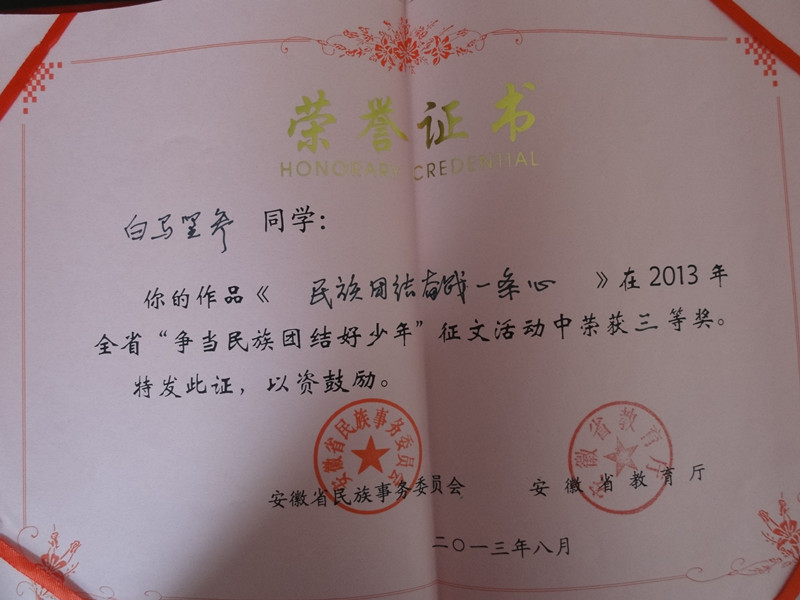 荣誉证书
HONORARY CREDENTIAL
白马坚参 同学：
你的作品《 民族团结奋战一条心 》在2013年
全省“争当民族团结好少年”征文活动中荣获三等奖。
特发此证，以资鼓励。
安徽省民族事务委员会
安徽省教育厅
安徽省民族事务委员会 安徽省教育厅
二〇一三年八月